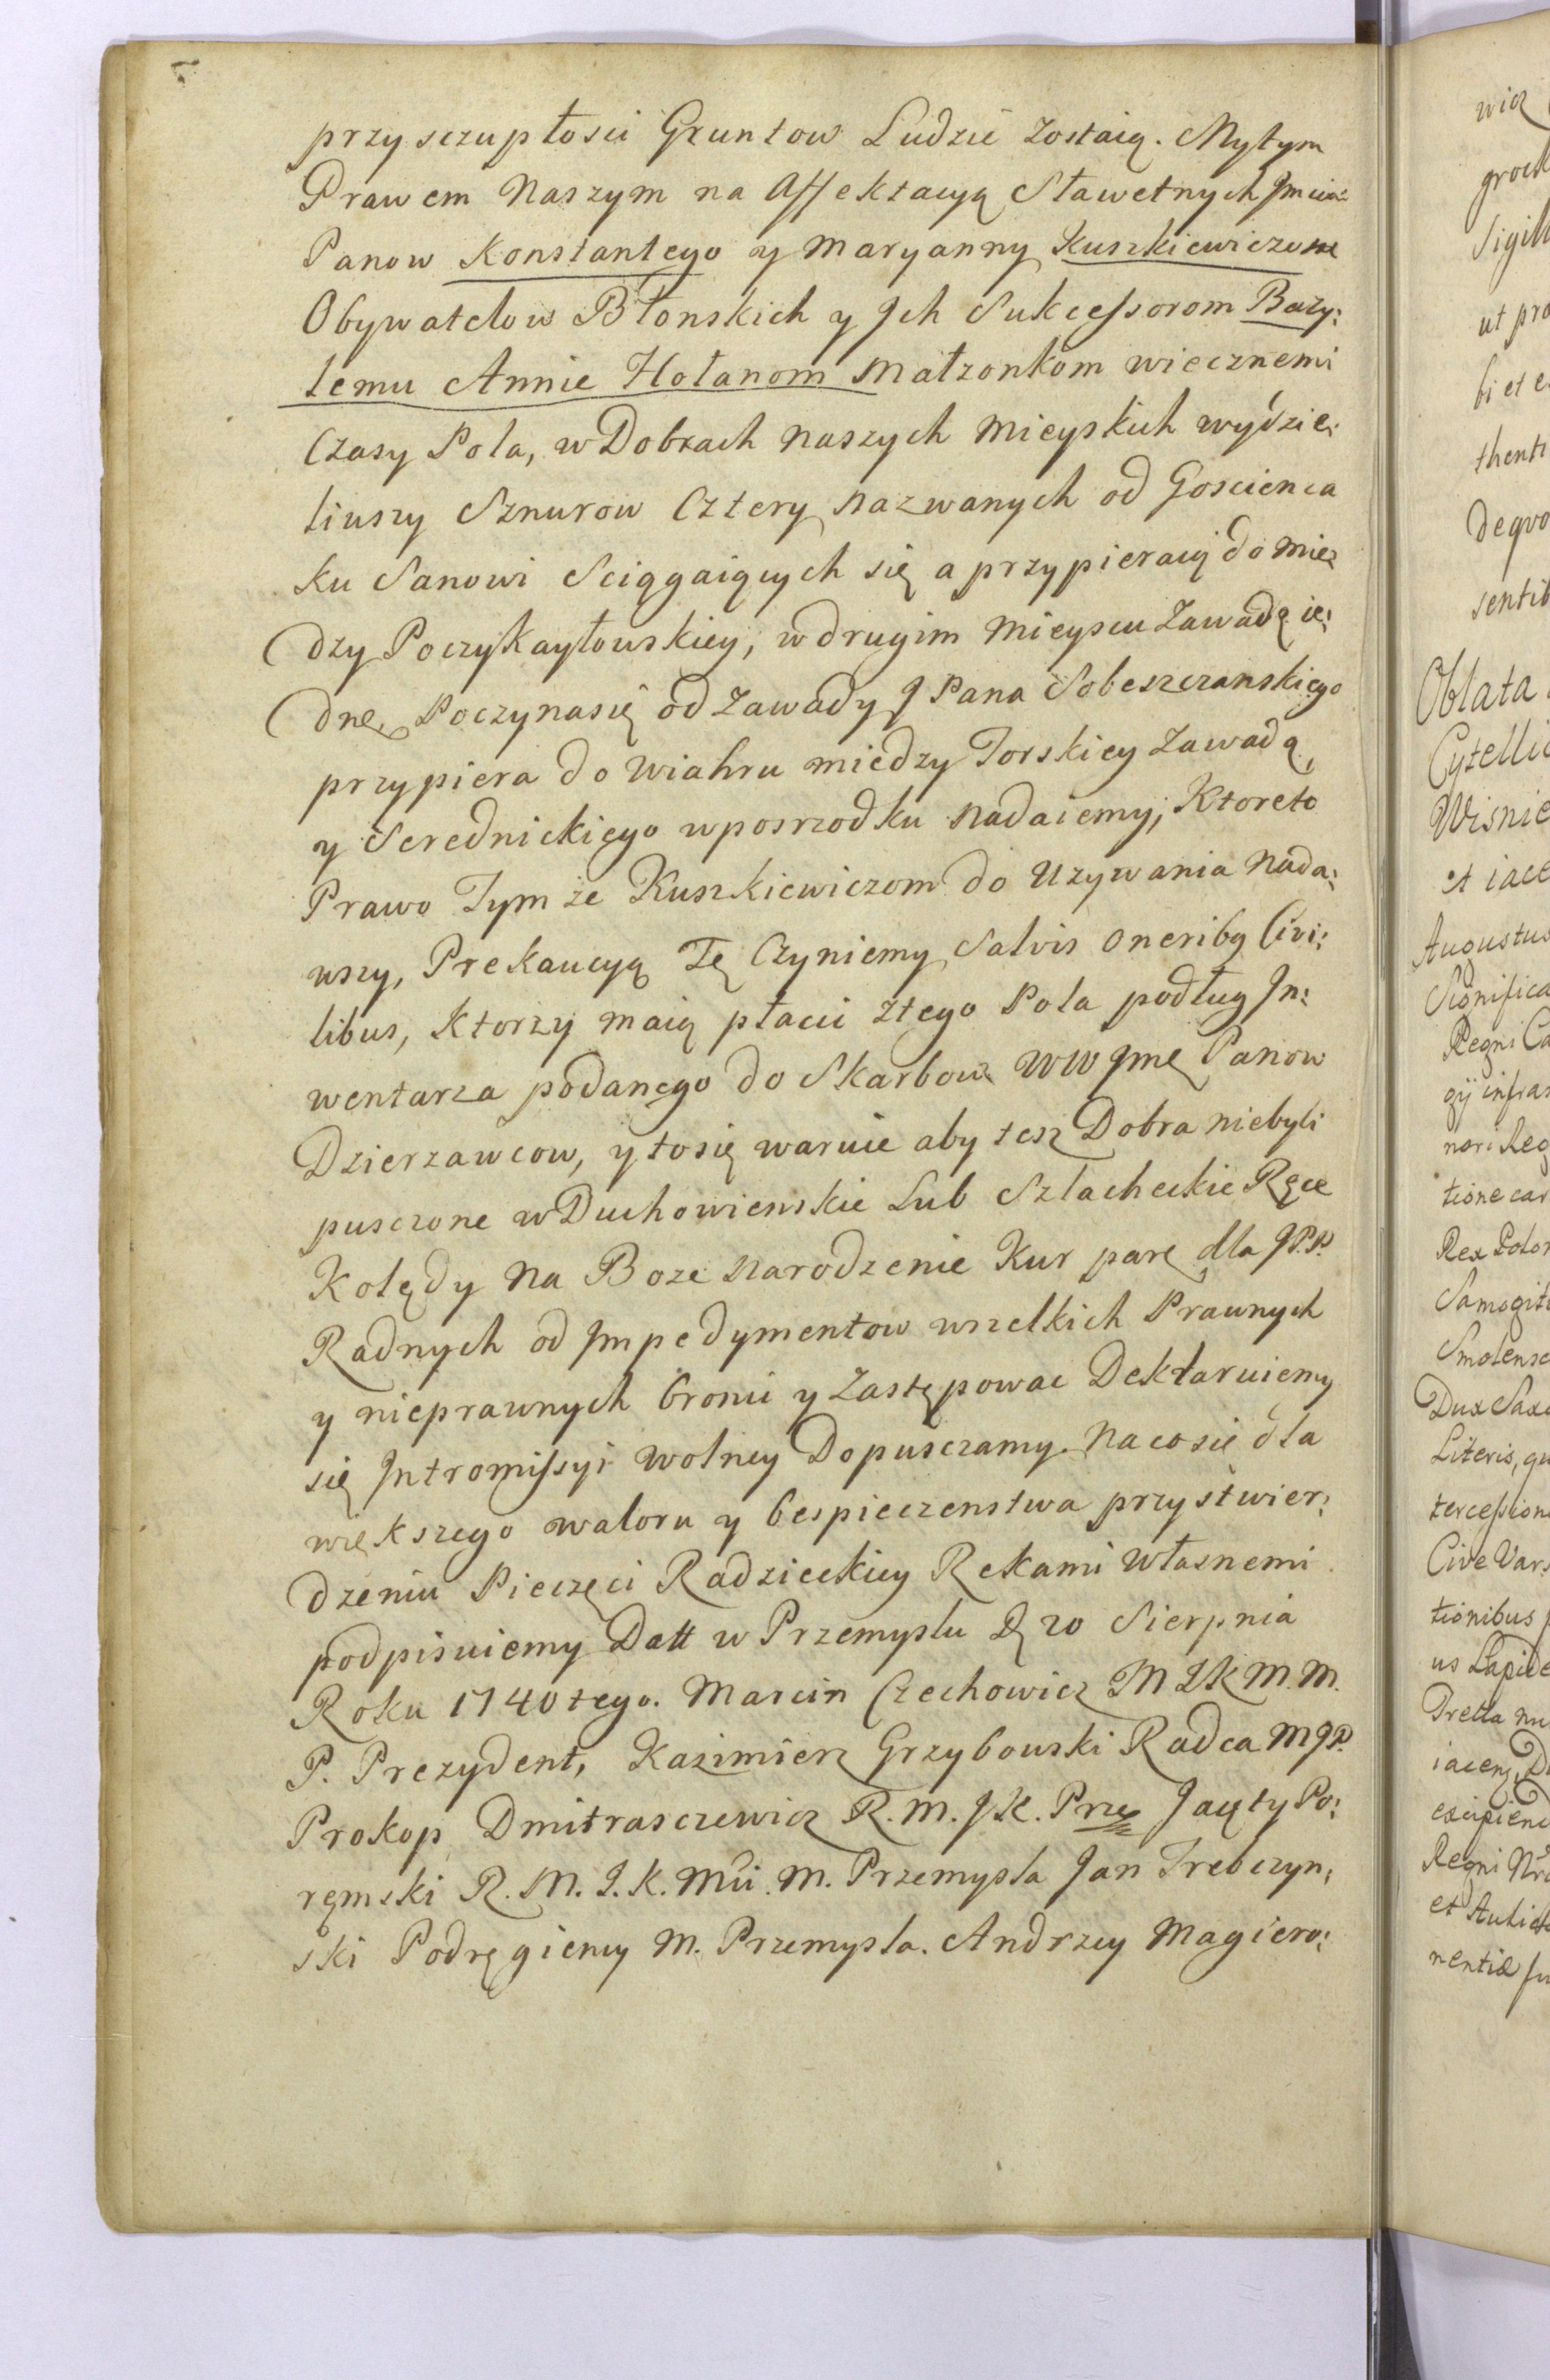 przy sczupłosci Gruntow Ludzie zostaią. My tym
Prawem Naszym na Affektacyą Sławetnych Jmcia:
Panow Konstantego y Maryanny Kuszkiewiczow
Obywatelow Błonskich y Jch Sukcessorom Bazy:
lemu Annie Hołanom Małzonkom wiecznemi
Czasy Pola, w Dobrach Naszych Mieyskich wydzie:
liwszy Sznurow Cztery nazwanych od Goscienca
ku Sanowi Sciągaiących się a przypieraią do Mie
dzy Poczykayłowskiey, w drugim Mieyscu Zawadę ie:
dnę, Poczynasię od Zawady J Pana Sobeszczanskiego
przypiera do Wiahru miedzy Torskiey Zawadą
y Serednickiego wposrzodku Nadaiemy, Ktoreto
Prawo Tym że Kuszkiewiczom do Uzywania Nada:
wszy, Prekaucyą Tę Czyniemy Salvis oneribq Civi:
libus, Ktorzy maią płacić z tego Pola podług Jn:
wentarza podanego do Skarbow WW Jme Panow
Dzierzawcow, y tosię waruie aby tesz Dobra niebyli
pusczone w Duchowienskie Lub Szlacheckie Ręce
Kolędy Na Boze Narodzenie Kur parę dla J P.P.
Radnych od Jmpedymentow wszelkich Prawnych
y nieprawnych bronić y Zastępowac Deklaruiemy
się Jntromissyi Wolney Dopusczamy. Na co sie dla
większego waloru y bespieczenstwa przy stwier:
dzeniu Pieczęci Radzieckiey Rekami Własnemi
podpisuiemy Datt w Przemyslu D 20 Sierpnia
Roku 1740 tego. Marcin Czechowicz M J K M. M.
P. Prezydent, Kazimierz Grzybowski Radca M J P.
Prokop Dmitrasczewicz R. M. J K. Prze Jacęty Po:
ręmski R. M. J. K. Mci M. Przemysla Jan Trebczyn:
ski Podręgieny M. Przemysla. Andrzey Magiero:
wicz
grock
Sigill
ut pro
bi et e
thenti
Deqvo
sentib
Oblata
Cytelli
Wisnie
et iace
Augustus
Significa
Regni Ca
gÿ infras
nori Reg
tione car
Rex Polon
Samogiti
Smolensc
Dux Saxo
Literis, qu
tercession
Cive Vars
tionibus p
us Lapide
Pretta nu
iaceng Do
excipiend
Regni Nr
et Autho
nentiæ Ju